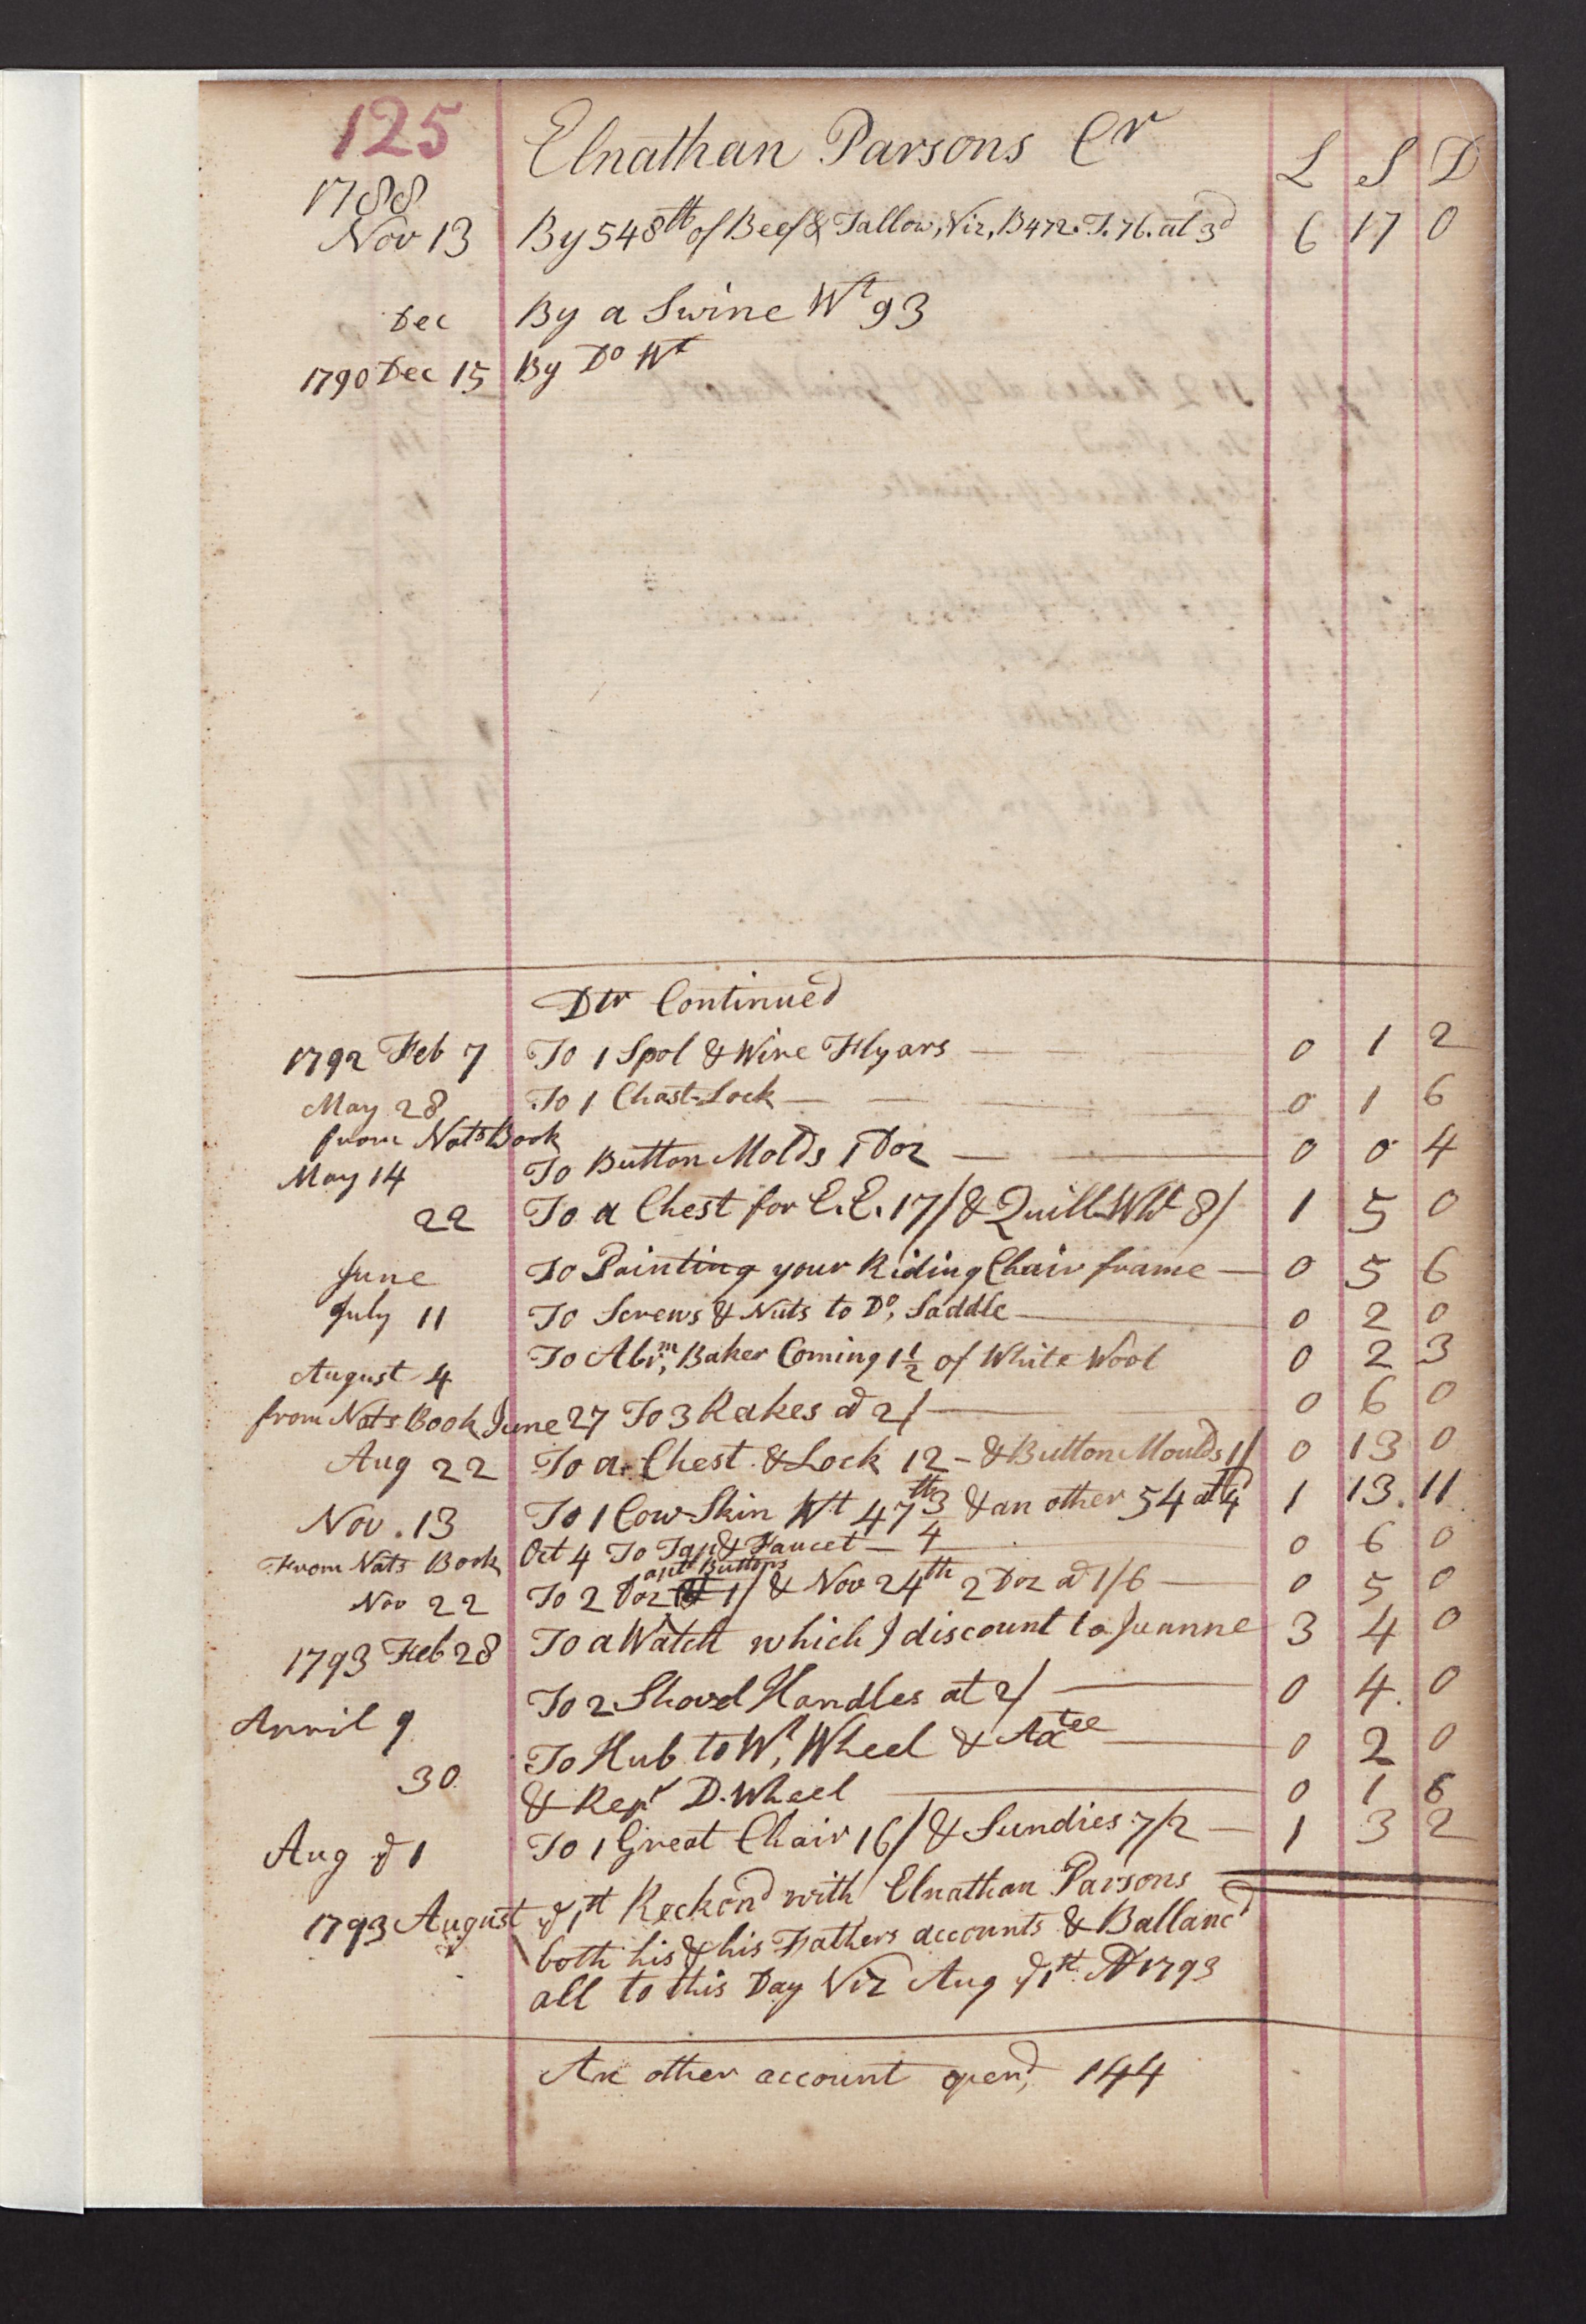 125 Elnathan Parsons Cr L S D
1788
Nov 13 By 548 lb of Beef & Tallow, Viz, B 472. T. 76. at 3d 6 17 0
Dec By a Swine Wt 93
1790 Dec 15 By Do Wt
Dtr Continued
1792 Feb 7 To 1 Spol & Wire Flyars 0 1 2
May 28 To 1 Chast-Lock 0 1 6
from Nats Book
May 14 To Button Molds 1 Doz 0 0 4
22 To a Chest for E.E. 17/ & Quill Whl 8/ 1 5 0
June To Painting your Riding Chair frame 0 5 6
July 11 To Screws & Nuts to Do, Saddle 0 2 0
August 4 To Abrm, Baker Coming 1 1/2 of White Wool 0 2 3
from Nats Book June 27 To 3 Rakes at 2/ 0 6 0
Aug 22 To a Chest & Lock 12 - & Button Moulds 1/ 0 13 0
Nov. 13 To 1 Cow-Skin Wt 47 lb 3/4 & an other 54 at 4d 1 13. 11
From Nats Book Oct 4 To Tap & Faucet 0 6 0
Nov 22 To 2 Doz Buttons 1/ & Nov 24th 2 Doz at 1/6 0 5 0
1793 Feb 28 To a Watch which I discount to 3 4 0
To 2 Shovel Handles at 2/ 0 4. 0
April 9 To Hub to Wl, Wheel & 0 2 0
30 & Repr D. Wheel 0 1 6
Aug ye 1 To 1 Great Chair 16/ & Sundies 7/2 1 3 2
1793 August ye 1st Reckond with Elnathan Parsons
both his & his Fathers accounts & Ballancd
all to this Day Viz Aug ye 1st AD 1793
An other account opend, 144